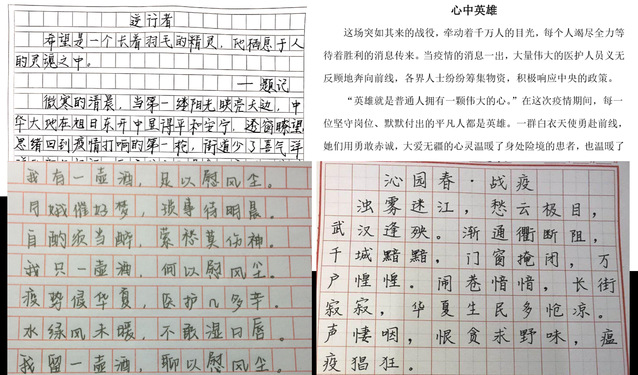 逆行者
希望是一个长着羽毛的精灵，他栖息于人
的灵魂之中。
——题记
微寒的清晨，当第一缕阳光映亮天边，中
华大地在祖日东开中显得平和安宁，透窗瞭望
思绪回到疫情打响的第一枪，街道少了喜气洋
心中英雄
这场突如其来的战役，牵动着千万人的目光，每个人竭尽全力等
待着胜利的消息传来。当疫情的消息一出，大量伟大的医护人员义无
反顾地奔向前线，各界人士纷纷筹集物资，积极响应中央的政策。
“英雄就是普通人拥有一颗伟大的心。”在这次疫情期间，每一
位坚守岗位、默默付出的平凡人都是英雄。一群白衣天使勇赴前线，
她们用勇敢赤诚，大爱无疆的心灵温暖了身处险境的患者，也温暖了
我有一壶酒，足以慰风尘。
月娥催好梦，琐事待明晨。
自酌须当醉，萦愁莫伤神。
我只一壶酒，何以慰风尘。
疫野候华夏，医护几多辛。
水绿风未暖，不敢湿口唇。
我留一壶酒，聊以慰风尘。
沁园春·战疫
浊雾迷江，愁云极目，
武汉逢殃。渐通衢断阻，
千城黯黯，门窗掩闭，万
户惶惶。闹巷愔愔，长街
寂寂，华夏生民多怆凉。
声悽咽，恨贪求野味，瘟
疫猖狂。